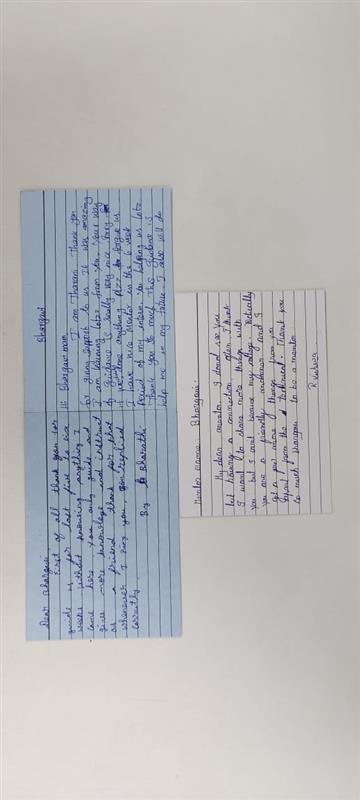 Dear Bhargavi,
First of all thank you for
guide us for last five to six
weeks without knowing anything I
came here you only guide and
give more knowledge and instruct
as a friend thank for that
whenever I ping you, you replied
correctly
By Bharathi
Bhargavi
Hi Bhargavi mam,
I am Tharani. Thank you
for giving support to us. It was amazing
I am learning lotz from you. Your way
of guidance is really very nice.
if we done anything plzz forgive us
I have nice Mentor in the 6 week
period of my intern. You helping us lotz
Thank you so much. This guidance is
help me in my future. I also will do
Mentor name: Bhargavi.
My dear mentor, I donot see you
but having a connection, often I think
I want to share more things with
you but I cant because my college. Actually
you are a friendly and I
get a few more things from you
apart from the technical. Thank you
so much bhargavi to be a mentor
R. Vishwa